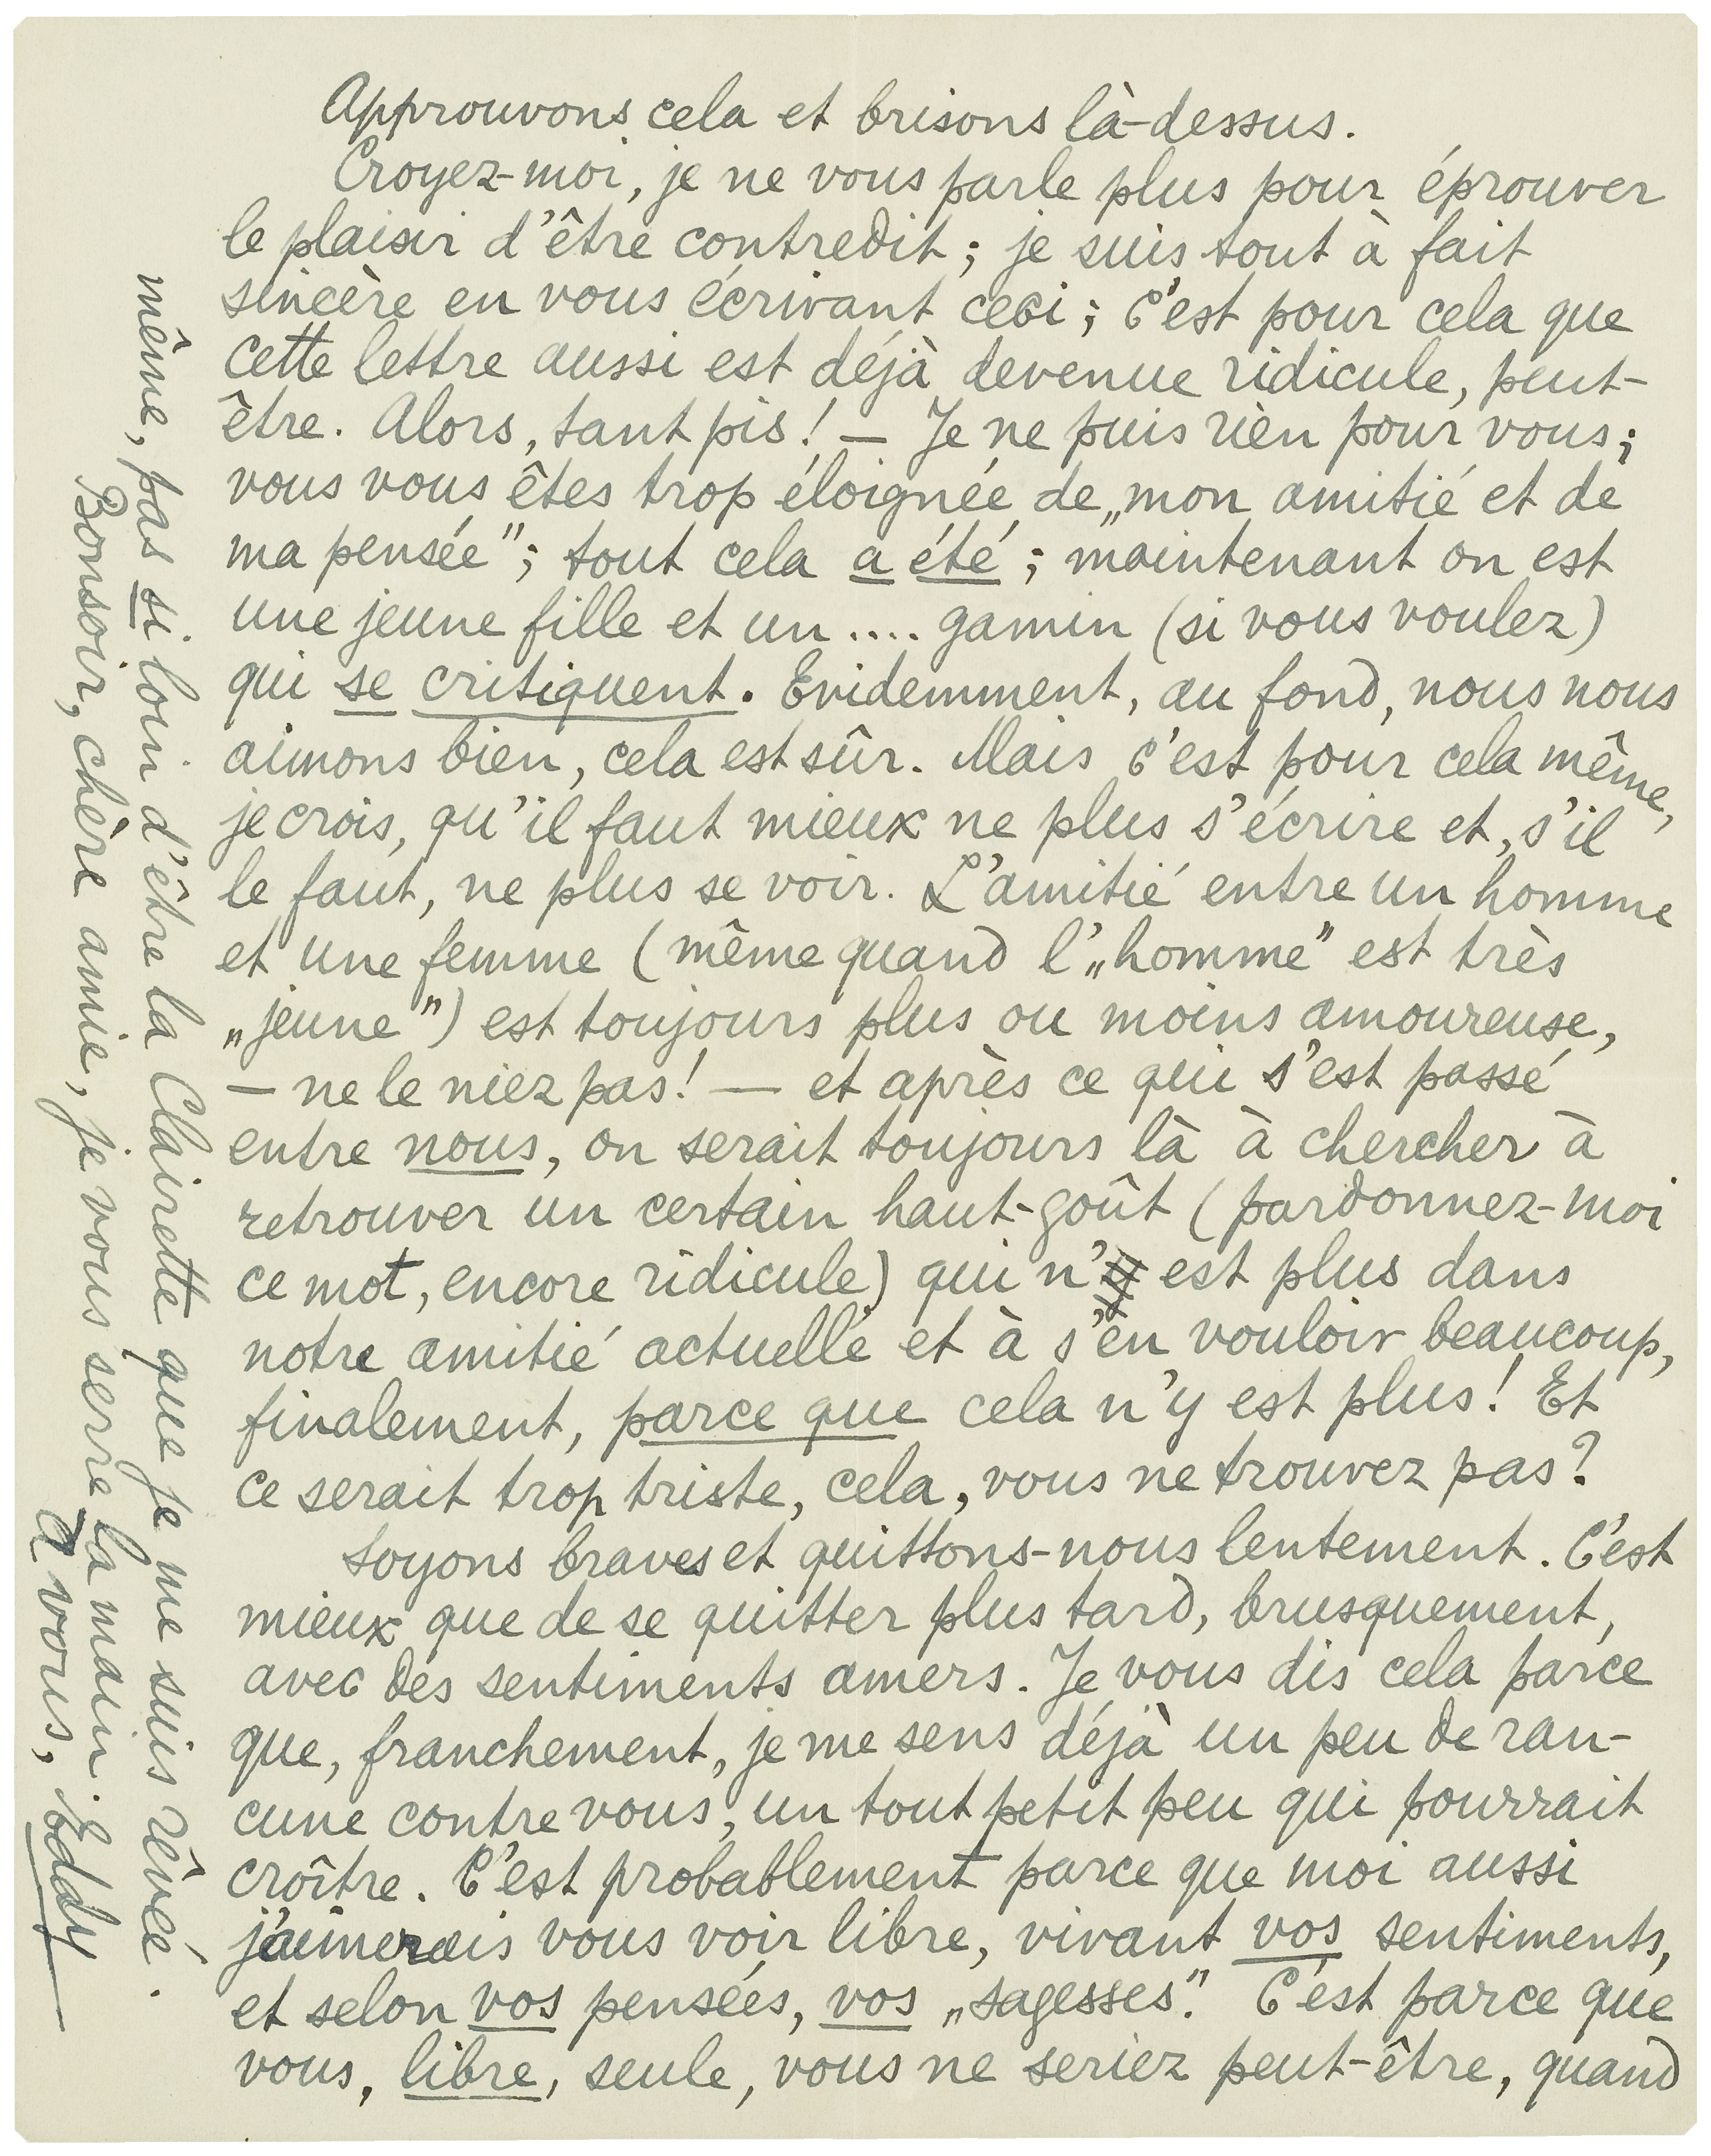 Approuvons cela et brisons là-dessus.
Croyez-moi, je ne vous parle plus pour éprouver
le plaisir d'être contredit ; je suis tout à fait
sincère en vous écrivant ceci ; c'est pour cela que
cette lettre aussi est déjà devenue ridicule, peut-
être. Alors, tant pis ! — Je ne puis rien pour vous ;
vous vous êtes trop éloignée de „mon amitié et de
ma pensée" ; tout cela a été ; maintenant on est
une jeune fille et un .... gamin (si vous voulez)
qui se critiquent. Evidemment, au fond, nous nous
aimons bien, cela est sûr. Mais c'est pour cela même,
je crois, qu'il faut mieux ne plus s'écrire et, s'il
le faut, ne plus se voir. L'amitié entre un homme
et une femme (même quand l'„homme" est très
„jeune") est toujours plus ou moins amoureuse,
— ne le niez pas ! — et après ce qui s'est passé
entre nous, on serait toujours là à chercher à
retrouver un certain haut-goût (pardonnez-moi
ce mot, encore ridicule) qui n' est plus dans
notre amitié actuelle et à s'en vouloir beaucoup,
finalement, parce que cela n'y est plus ! Et
ce serait trop triste, cela, vous ne trouvez pas ?
Soyons braves et quittons-nous lentement. C'est
mieux que de se quitter plus tard, brusquement,
avec des sentiments amers. Je vous dis cela parce
que, franchement, je me sens déjà un peu de ran-
cune contre vous, un tout petit peu qui pourrait
croître. C'est probablement parce que moi aussi
j'aimerais vous voir libre, vivant vos sentiments,
et selon vos pensées, vos „sagesses". C'est parce que
vous, libre, seule, vous ne seriez peut-être, quand
même, pas si loin d'être la Clairette que je me suis rêvée.
Bonsoir, chère amie, je vous serre la main.
à vous, Eddy